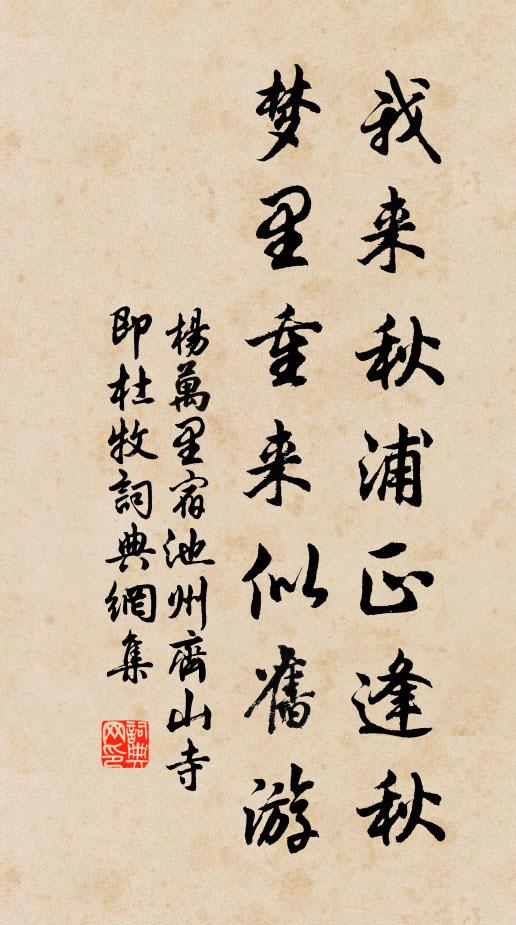 我来秋浦正逢秋
梦里重来似舊游
楊萬里宿池州齊山寺
即杜牧詞典網集
詞典
网印